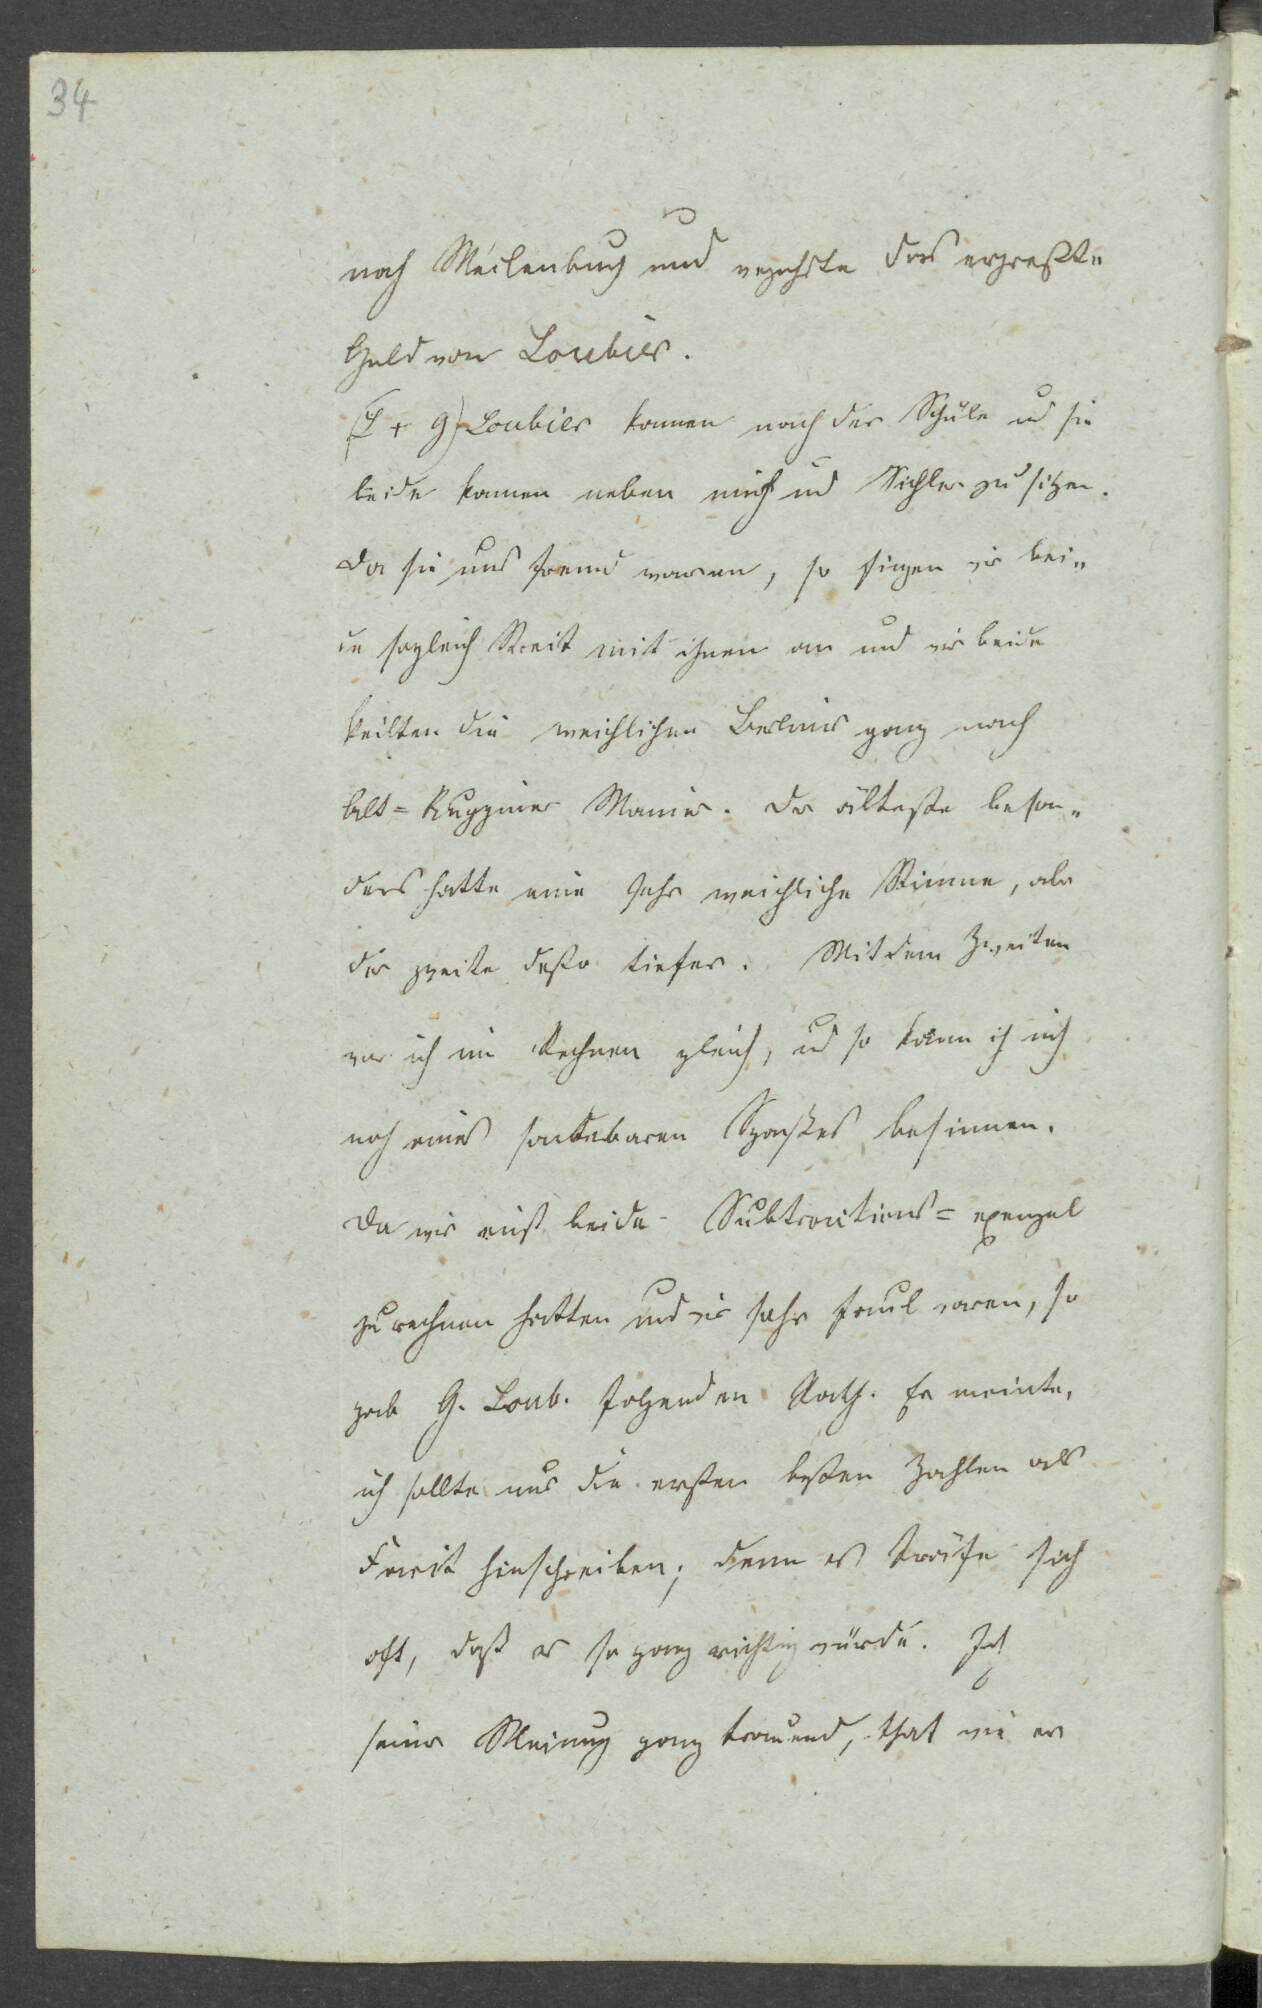 34
nach Meilenbug und verzehrte das erpreßte
Geld von Loubier.
(F + G) Loubier kamen nach der Schule und sie
beide kamen neben mich und Sichler zu sitzen.
Da sie uns fremd waren, so fingen wir bei„
de sogleich Streit mit ihnen an und wir beide
keilten die weichlichen Berliner ganz nach
Alt=Ruppiner Manier. Der älteste beson„
ders hatte eine sehr weichliche Stimme, aber
der zweite desto tiefer. Mit dem Zweiten
war ich im Rechnen gleich, und so kann ich mich
noch eines sonderbaren Spaßes besinnen.
Da wir einst beide Subtractions=exempel
zu rechnen hatten und wir sehr faul waren, so
gab G. Loub. folgenden Rath. Er meinte,
ich sollte nur die ersten besten Zahlen als
Facit hinschreiben; denn es träfe sich
oft, daß es so ganz richtig würde. Ich
seiner Meinung ganz trauend, that wie er